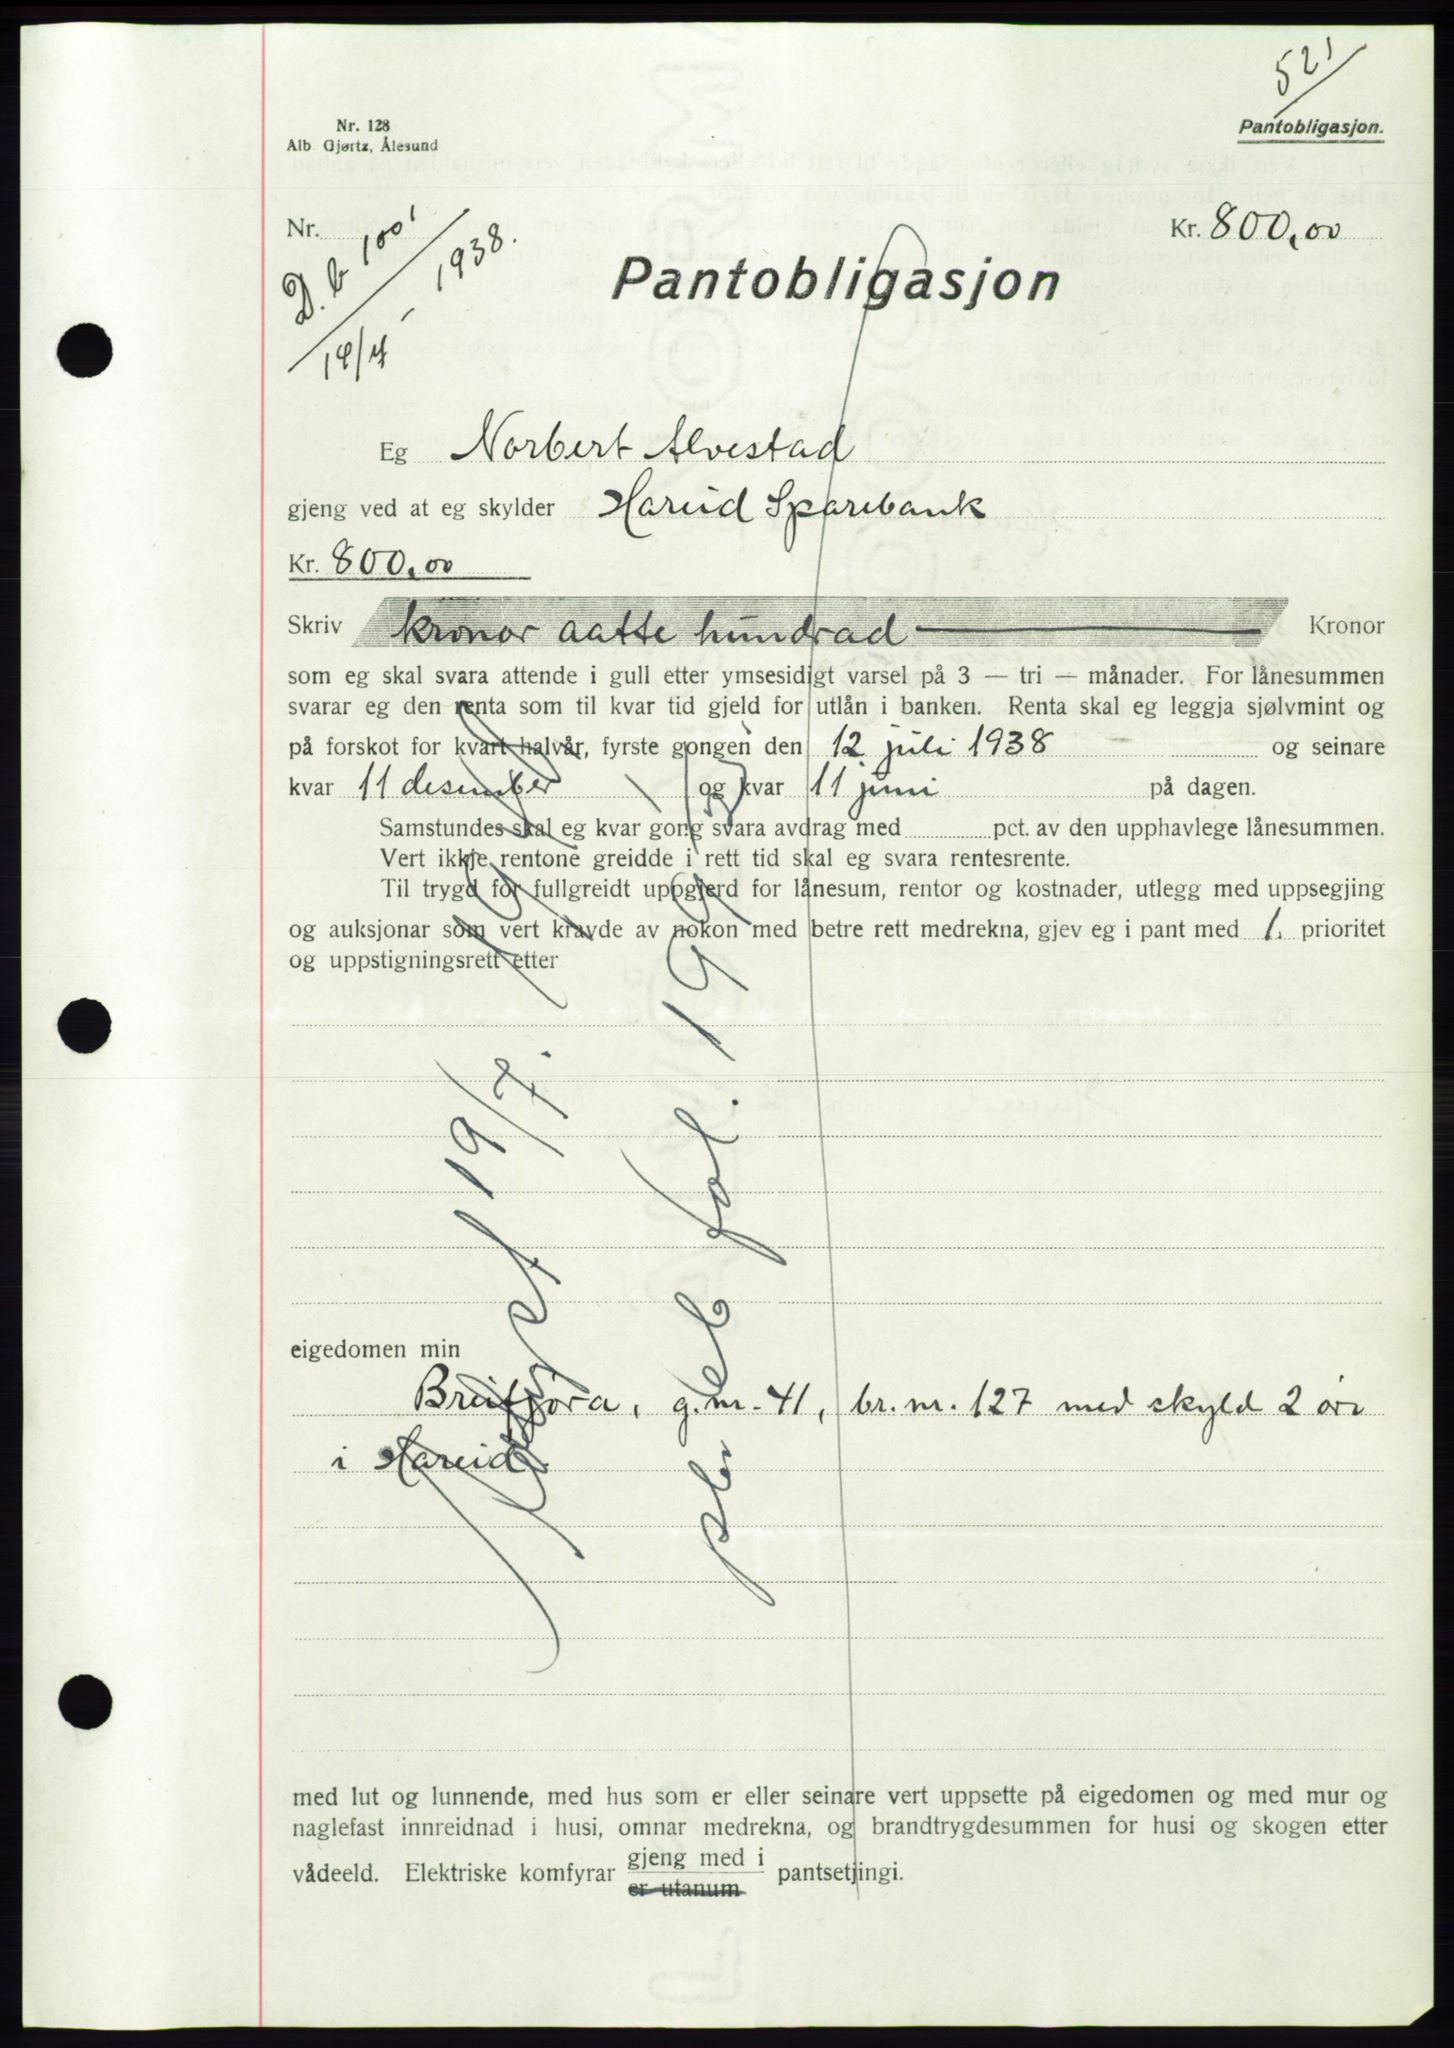 521
Nr. 128
Alb. Gjørtz, Ålesund
Pantobligasjon.
Nr.
Kr. 800,00
D. b 1001
1938.
Pantobligasjon
Eg Norbert Alvestad
gjeng ved at eg skylder Hareid Sparebank
Kr. 800,00
Skriv kronor aatte hundrad Kronor
som eg skal svara attende i gull etter ymsesidigt varsel på 3 — tri — månader. For lånesummen
svarar eg den renta som til kvar tid gjeld for utlån i banken. Renta skal eg leggja sjølvmint og
på forskot for kvart halvår, fyrste gongen den 12 juli 1938 og seinare
kvar 11 desember og kvar 11 juni på dagen.
Samstundes skal eg kvar gong svara avdrag med pct. av den upphavlege lånesummen.
Vert ikkje rentone greidde i rett tid skal eg svara rentesrente.
Til trygd for fullgreidt uppgjerd for lånesum, rentor og kostnader, utlegg med uppsegjing
og auksjonar som vert kravde av nokon med betre rett medrekna, gjev eg i pant med 1. prioritet
og uppstigningsrett etter
eigedomen min
Breitjøra, g.nr. 41, br.nr. 127 med skyld 2 øre
i Hareid.
med lut og lunnende, med hus som er eller seinare vert uppsette på eigedomen og med mur og
naglefast innreidnad i husi, omnar medrekna, og brandtrygdesummen for husi og skogen etter
vådeeld. Elektriske komfyrar gjeng med i pantsetjingi.
er utanum
19/7.
fol. 199